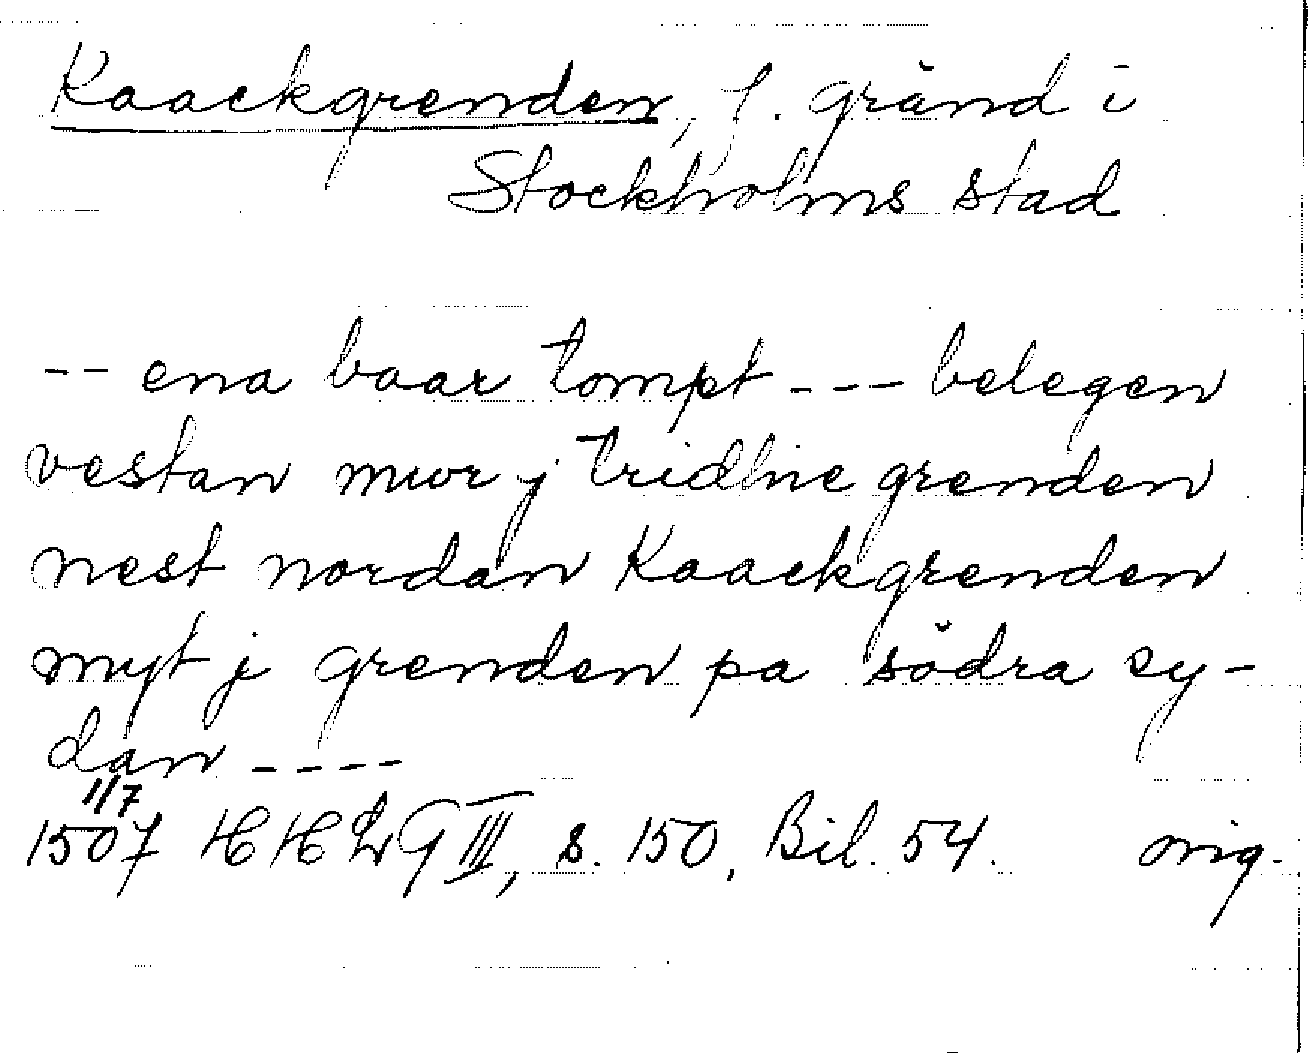 Kaackgrenden, f. gränd i
Stockholms stad
-- ena baar tompt --- belegen
vestan mwr j tridhie grenden
nest nordan Kaackgrenden
myt j grenden pa södra sy-
dan ----
1/7
1507 HHLG III, s. 150, Bil. 54. orig.